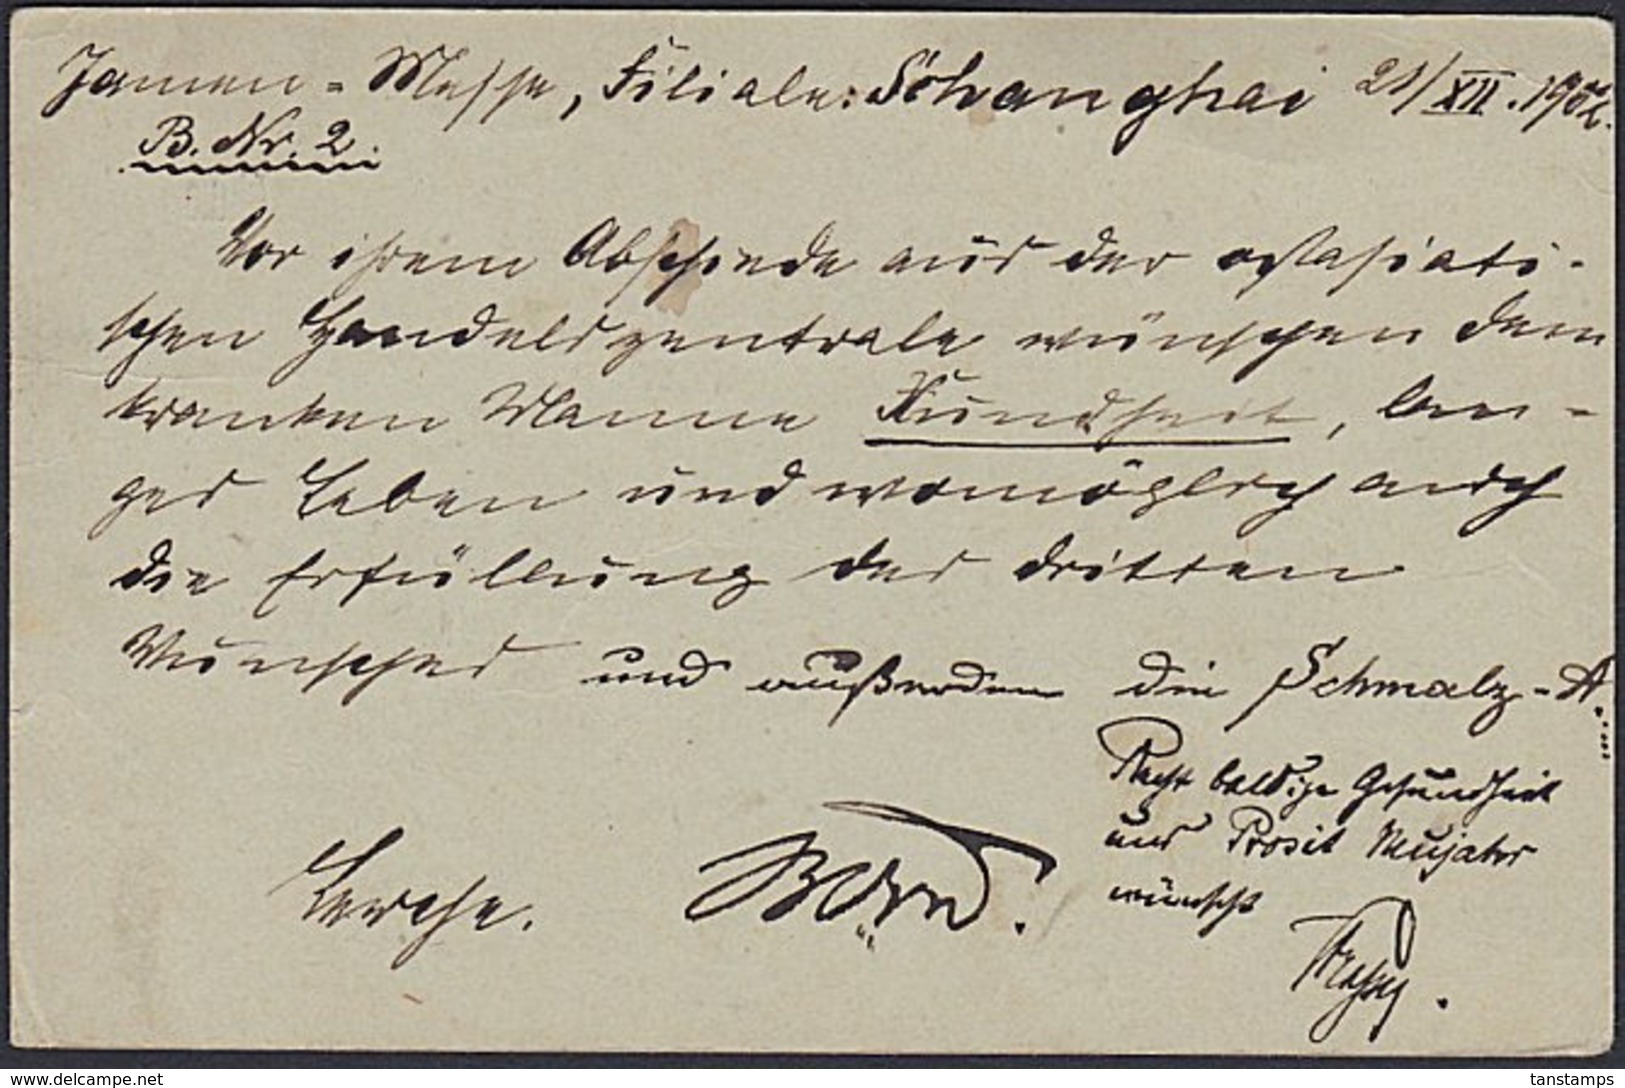 Jamen-Messe, Filiale: Schanghai 21/XII.1902.
B. Nr. 2
Vor ihrem Abschiede aus der ostasiati-
schen Handelszentrale wünschen dem
kranken Manne Xundheit, lan-
ges Leben und womöglich auch
die Erfüllung des dritten
Wunsches und außerdem die Schmalz-A....
Recht baldige Gesundheit
und Prosit Neujahr
wünscht
Lerche.
tanstamps
© delcampe.net